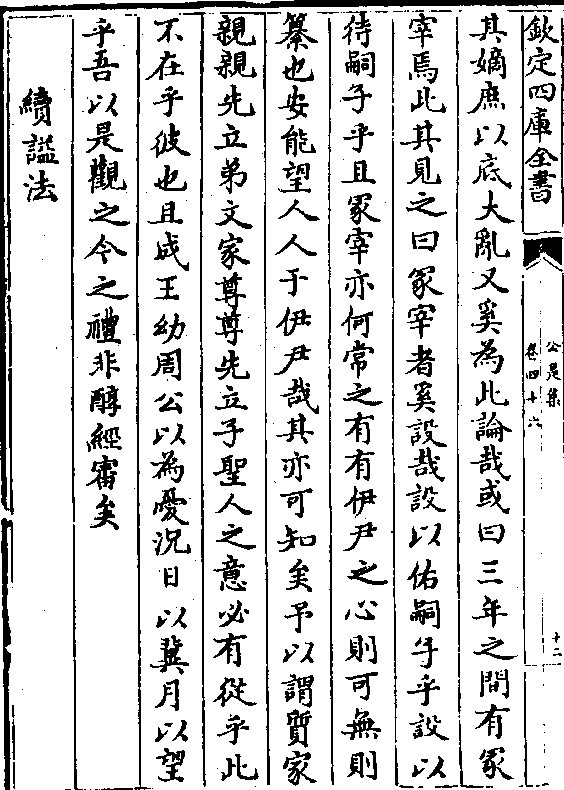 欽定四庫全書
公是集
卷四十六
十二
其嫡庶以底大亂又奚為此論哉或曰三年之間有冢
宰焉此其見之曰冢宰者奚設哉設以佑嗣子乎設以
待嗣子乎且冢宰亦何常之有有伊尹之心則可無則
簒也安能望人人于伊尹哉其亦可知矣予以謂質家
親親先立弟文家尊尊先立子聖人之意必有從乎此
不在乎彼也且成王幼周公以為憂況日以冀月以望
乎吾以是觀之今之禮非醇經審矣
續諡法